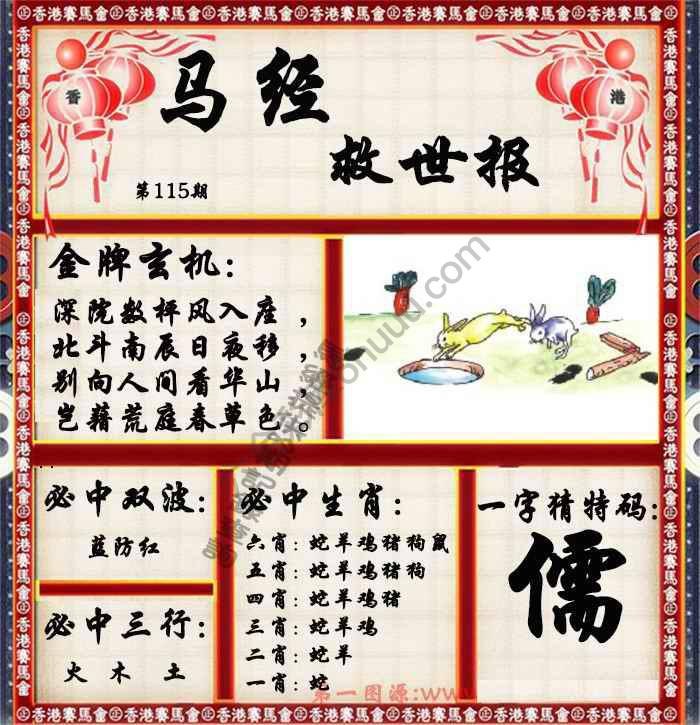 香港賽馬會
香 港
马经
救世报
第115期
金牌玄机：
深院数枰风入座，
北斗南辰日夜移，
别向人间看华山，
岂藉荒庭春草色。
必中双波：
蓝防红
必中三行：
火 木 土
必中生肖：
六肖：蛇羊鸡猪狗鼠
五肖：蛇羊鸡猪狗
四肖：蛇羊鸡猪
三肖：蛇羊鸡
二肖：蛇羊
一肖：蛇
一字猜特码：
儒
第一图源:www